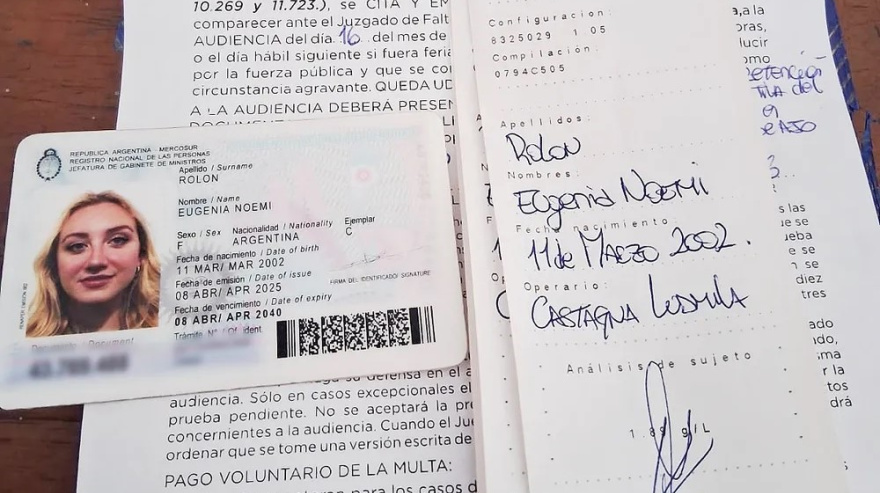 10.269 y 11.723.), se CITA Y EM
comparecer ante el Juzgado de Falt
AUDIENCIA del día 16 del mes de
o el día hábil siguiente si fuera feria
por la fuerza pública y que se co
circunstancia agravante. QUEDA UD
A LA AUDIENCIA DEBERÁ PRESEN
REPUBLICA ARGENTINA - MERCOSUR
REGISTRO NACIONAL DE LAS PERSONAS
JEFATURA DE GABINETE DE MINISTROS
Apellido / Surname
ROLON
Nombre / Name
EUGENIA NOEMI
Sexo / Sex Nacionalidad / Nationality Ejemplar
F ARGENTINA C
Fecha de nacimiento / Date of birth
11 MAR/ MAR 2002
Fecha de emisión / Date of issue
08 ABR/ APR 2025
FIRMA DEL IDENTIFICADO/ SIGNATURE
Fecha de vencimiento / Date of expiry
08 ABR/ APR 2040
Trámite N° / Of. ident
Documento / Document
su defensa en el a
audiencia. Sólo en casos excepcionales el
prueba pendiente. No se aceptará la pre
concernientes a la audiencia. Cuando el Ju
ordenar que se tome una versión escrita de
PAGO VOLUNTARIO DE LA MULTA:
para los casos d
Configuracion:
8325029 1 05
Compilación:
0794C505
Apellidos:
ROLON
Nombres:
EUGENIA NOEMI
Fecha nacimiento:
11 de MARZO 2002.
Operario:
CASTAGNA LUDMILA
Análisis de sujeto
1.89 g/L
,a la
oras,
ducir
omo
las
ue se
ueba
e se
n se
diez
tres
ado
do,
ima
r la
tos
drá